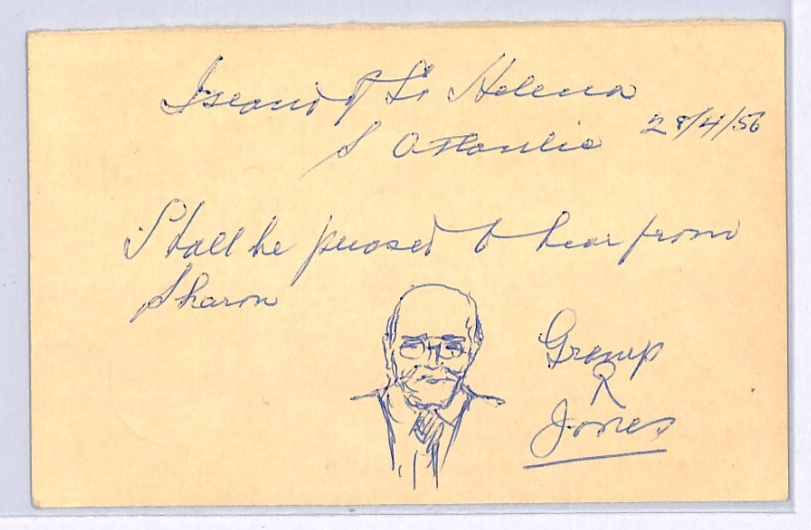 Island of St Helena
S Atlantic 28/4/56
I tall be pleased to hear from
Sharon
Gramp
R
Jones